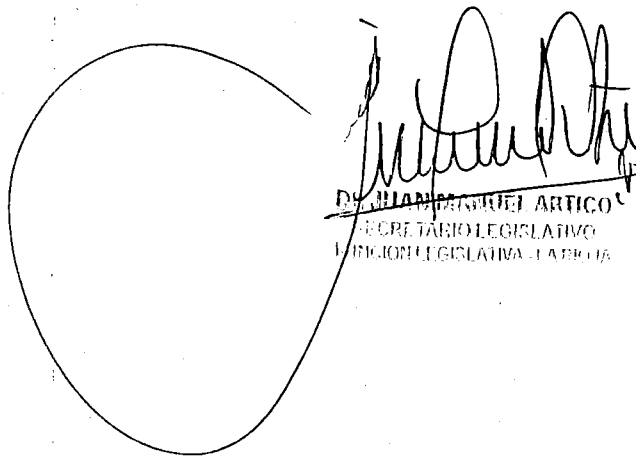 Dr. JUAN MANUEL ARTICO
SECRETARIO LEGISLATIVO
FUNCION LEGISLATIVA - LA RIOJA